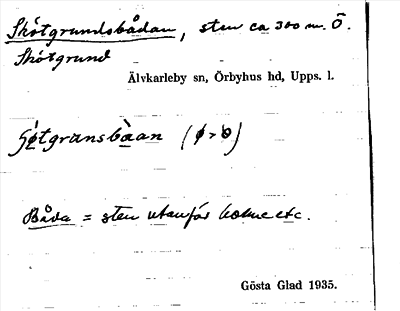 Skötgrundsbådan, sten ca 300 m. Ö.
Skötgrund
Älvkarleby sn, Örbyhus hd, Upps. l.
(ø > o)
Båda = sten utanför holme etc.
Gösta Glad 1935.